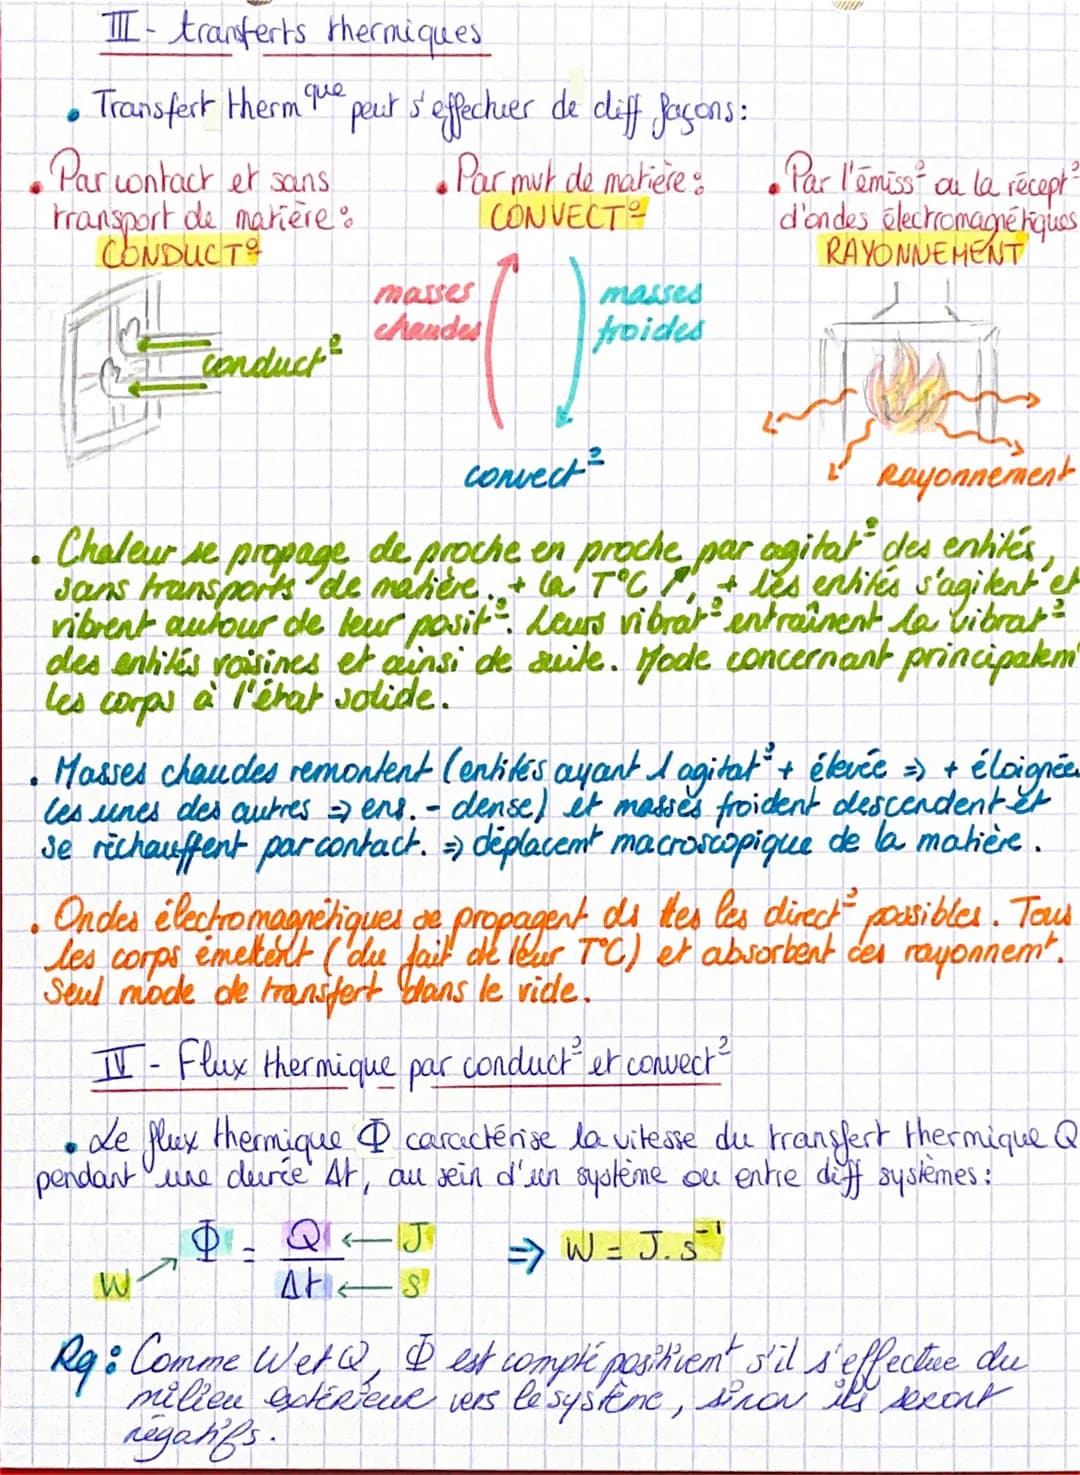 III - tranferts thermiques
• Transfert therm que peut s'effectuer de diff façons:
• Par contact et sans
transport de matière :
CONDUCT°
• Par mvt de matière :
CONVECT°
• Par l'émiss° ou la récept°
d'ondes électromagnétiques
RAYONNEMENT
conduct°
masses
chaudes
masses
froides
convect°
Rayonnement
• Chaleur se propage de proche en proche par agitat° des entités,
sans transports de matière. + la T°C ↗, + les entités s'agitent et
vibrent autour de leur posit°. Leurs vibrat° entraînent la vibrat°
des entités voisines et ainsi de suite. Mode concernant principalem
les corps à l'état solide.
• Masses chaudes remontent (entités ayant 1 agitat° + élevée => + éloignées
les unes des autres => ens. - dense) et masses froident descendent et
se réchauffent par contact. => déplacemt macroscopique de la matière.
• Ondes électromagnétiques se propagent ds ttes les direct° possibles. Tous
les corps émettent (du fait de leur T°C) et absorbent ces rayonnemt.
Seul mode de transfert dans le vide.
IV - Flux thermique par conduct° et convect°
• Le flux thermique Φ caractérise la vitesse du transfert thermique Q
pendant une durée Δt, au sein d'un système ou entre diff systèmes :
W → Φ = Q ← J
Δt ← s
=> W = J.s⁻¹
Rq : Comme W et Q, Φ est compté positivemt s'il s'effectue du
milieu extérieur vers le système, sinon ils seront
négatifs.